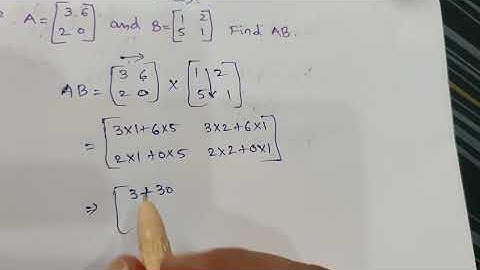 A = [3 6 2 0] and B = [1 2 5 1] Find AB.
AB = [3 6 2 0] × [1 2 5 1]
= [3×1+6×5 3×2+6×1
2×1+0×5 2×2+0×1]
⇒ [3+30